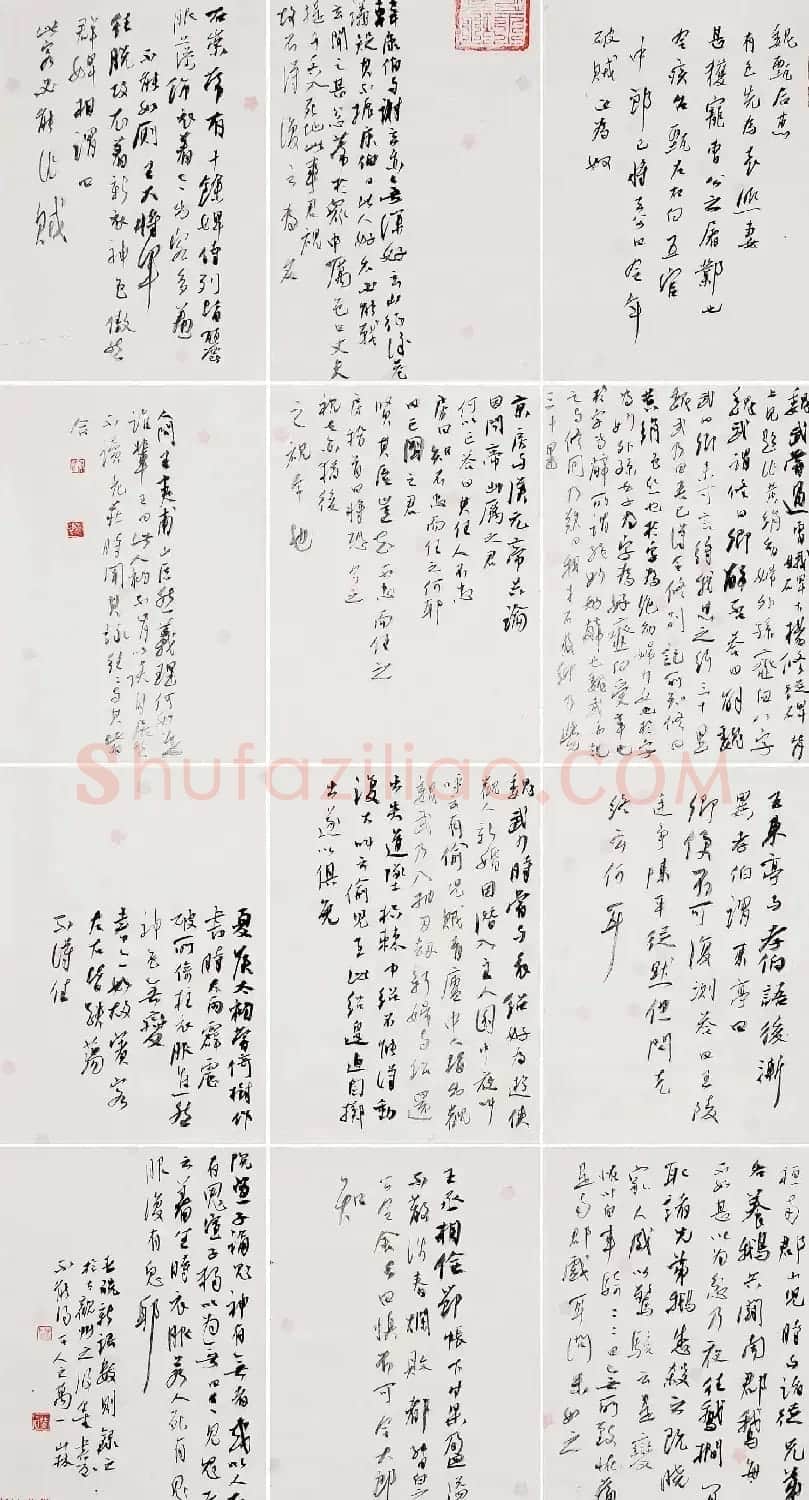 魏甄后惠
有色先為袁熙妻
甚獲寵曹公之屠鄴也
令疾召甄左右白五官
中郎已將去公曰今年
破賊正為奴
韓康伯與謝玄亦無深好玄北征後巷
議疑其不振康伯曰此人好名必能戰
玄聞之甚忿常於眾中厲色曰丈夫
提千兵入死地以事君親
故不得復云為名
石崇廁有十餘婢侍列皆麗
服藻飾
不能如廁王大將軍
往脫故衣著新衣神色傲然
群婢相謂曰
此客必能作賊
魏武嘗過曹娥碑下楊修從碑背
上見題作黃絹幼婦外孫齏臼八字
魏武謂修曰卿解否答曰解魏
武曰卿未可言待我思之行三十里
魏武乃曰吾已得令修別記所知修曰
黃絹色絲也於字為絕幼婦少女也於字
為妙外孫女子也於字為好齏臼受辛也
於字為辭所謂絕妙好辭也魏武亦記
之與修同乃嘆曰我才不及卿乃覺
三十里
京房與漢元帝共論
因問帝幽厲之君
何以亡答曰其任人不忠
房曰知不忠而任之何耶
曰亡國之君
賢其臣豈知不忠而任之
房稽首曰將恐今之
視古亦猶後
之視今也
人問王夷甫山巨源義理何如是
誰輩王曰此人初不肯以談自居然
不讀老莊時聞其詠往往與其旨
合
Shufaziliao.COM
王東亭與孝伯語後漸
異孝伯謂東亭曰
卿便不可復測答曰王陵
廷爭陳平從默但問克
終云何耳
魏武少時嘗與袁紹好為遊俠
觀人新婚因潛入主人園中夜叫
呼云有偷兒賊青廬中人皆出觀
魏武乃入抽刃劫新婦與紹還
出失道墜枳棘中紹不能得動
復大叫云偷兒在此紹遑迫自擲
出遂以俱免
夏侯太初嘗倚樹作
書時大雨霹靂
破所倚柱衣服焦然
神色無變
書亦如故賓客
左右皆跌蕩
不得住
桓南郡小兒時與諸從兄弟
各養鵝共鬥南郡鵝每
不如甚以為忿乃夜往鵝欄間
取諸兄弟鵝悉殺之既曉
家人咸以驚駭云是變
怪以白車騎車騎曰無所致怪當
是南郡戲耳問果如之
王丞相儉節帳下甘果盈溢
不散涉春爛敗都督白之
公令舍去曰慎不可令大郎
知
阮宣子論鬼神有無者或以人死
有鬼宣子獨以為無曰今見鬼者
云著生時衣服若人死有鬼
服復有鬼耶
世說新語數則錄之